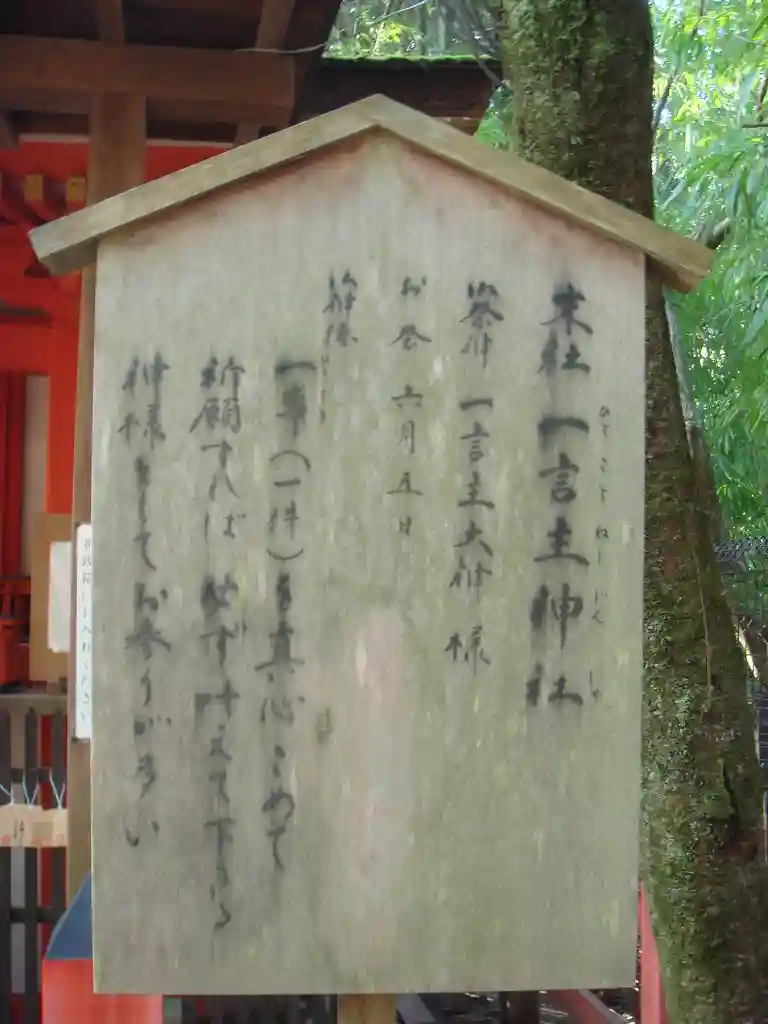 末社 一言主神社
ひとことぬしじんじゃ
祭神 一言主大神様
お祭 六月五日
一事(一件)を真心こめて
祈願すれば 必ず叶えて下さる
神様としてお参りが多い